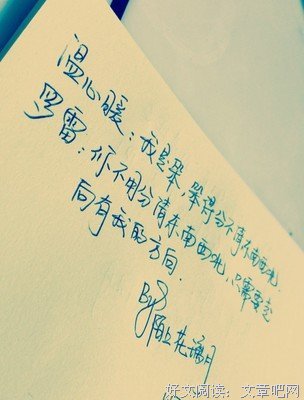 温心暖：我是笨，笨得分不清东南西北。
罗雷：你不用分清东南西北，只需要走
向有我的方向.
By 陌上花满月
好文阅读：文章吧网